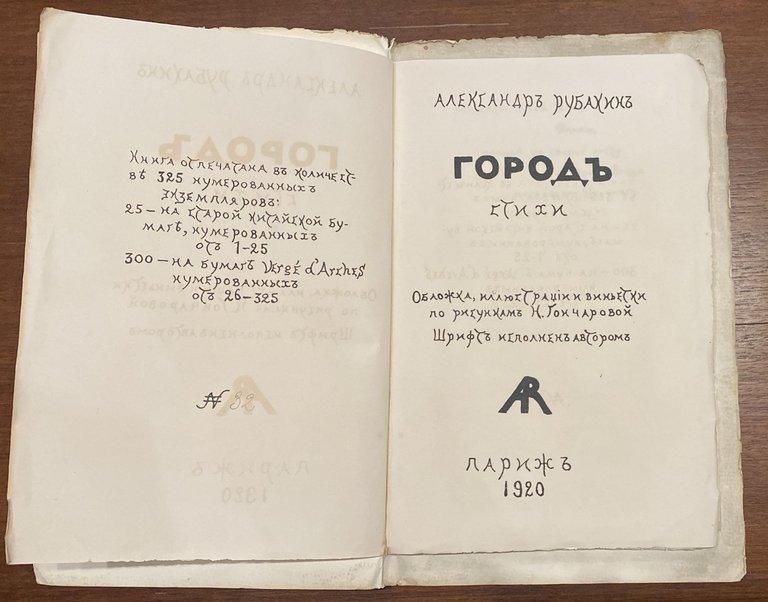 Книга отпечатана въ количест-
вѣ 325 нумерованныхъ
экземпляровъ:
25 — на старой китайской бу-
магѣ, нумерованныхъ
отъ 1-25
300 — на бумагѣ Vergé d'Arches
нумерованныхъ
отъ 26-325
№ 32
АЛЕКСАНДРЪ РУБАКИНЪ
ГОРОДЪ
СТИХИ
Обложка, иллюстрации и виньетки
по рисункамъ Н. Гончаровой
Шрифтъ исполненъ авторомъ
AR
ПАРИЖЪ
1920